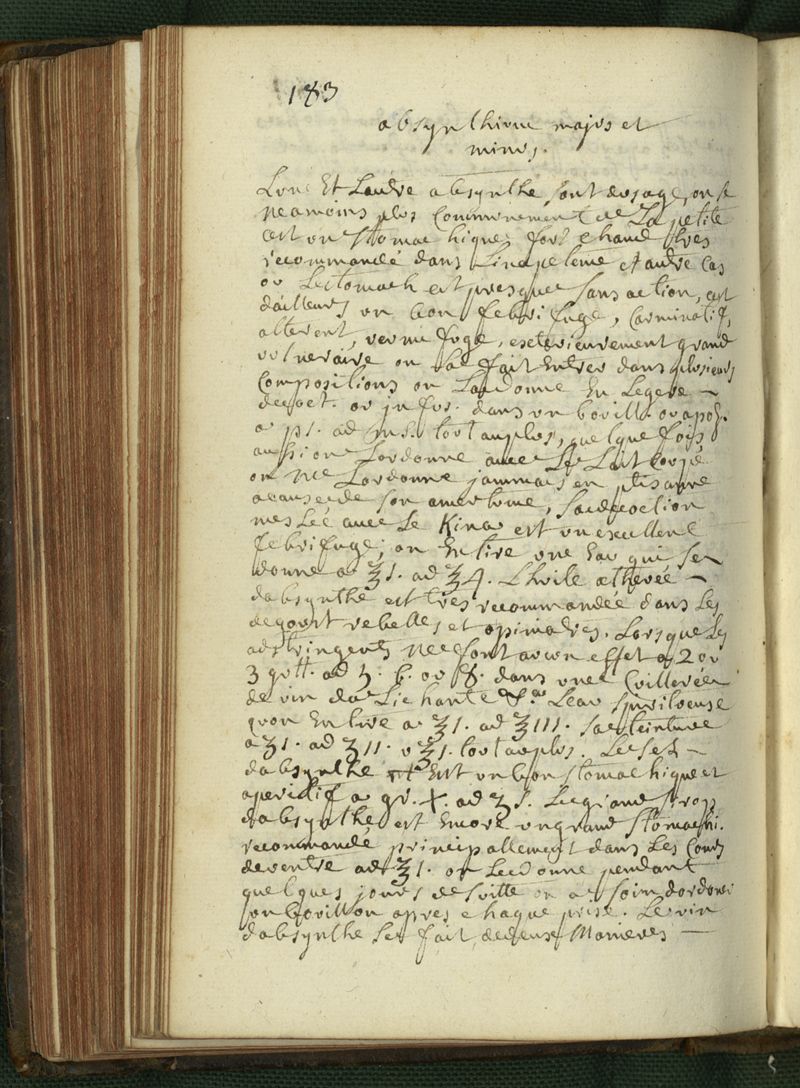 183
absynthium majus et
minus.
Lun Et Lautre absynthe sont dusage, on se
neamoins plus Communement de La petite
cest un stomachique fort chaud tres
recommandé dans Linapetence et autre Cas
ou Lestomach est presque sans action, cest
dailleurs un bon febrifuge, Carminatif,
alterent, vermifuge, exterieurement grand
vulneraire on La fait Entrer dans plusieurs
Compositions on Lordonne En Legere
decoct. ou infus. dans un bouill. ou apoz.
a p1. ad m s. tout auplus, quelque fois
aussi on Lordonne avec Le Lait coupé
on ne Lordonne jammais en ptisanne
acause de son amertume, sa decoction
meslée avec Le Kina est un excellent
febrifuge; on En tire une Eau qui se
donne a ℥1. ad ℥4. Lhuile etherée
dabsynthe est tres recommandée dans Les
degout rebelles et opiniatres. Lorsque Les
adstringents ne font aucun effet a 2 ou
3 gutt. ad 5. 6. ou 8. dans une Cuillerée
de vin da Lichante &.a Leau spiritueuse
quon En tire a ʒ1. ad ʒIII. sa teinture
a ʒ1. ad ʒII. tout auplus. Le sel
dabsynthe Est un bon stomachique et
aperitif a gr. X. ad ʒ s. Le grand sirop
dabsynthe est Encore un grand stomachi.
recommandé principallement dans Les Cours
deventre ad ℥1. on Le donne pendant
quelques jours desuitte on a soin dordoner
un bouillon apres chaque prise. Le vin
dabsynthe se fait dedeux Manieres